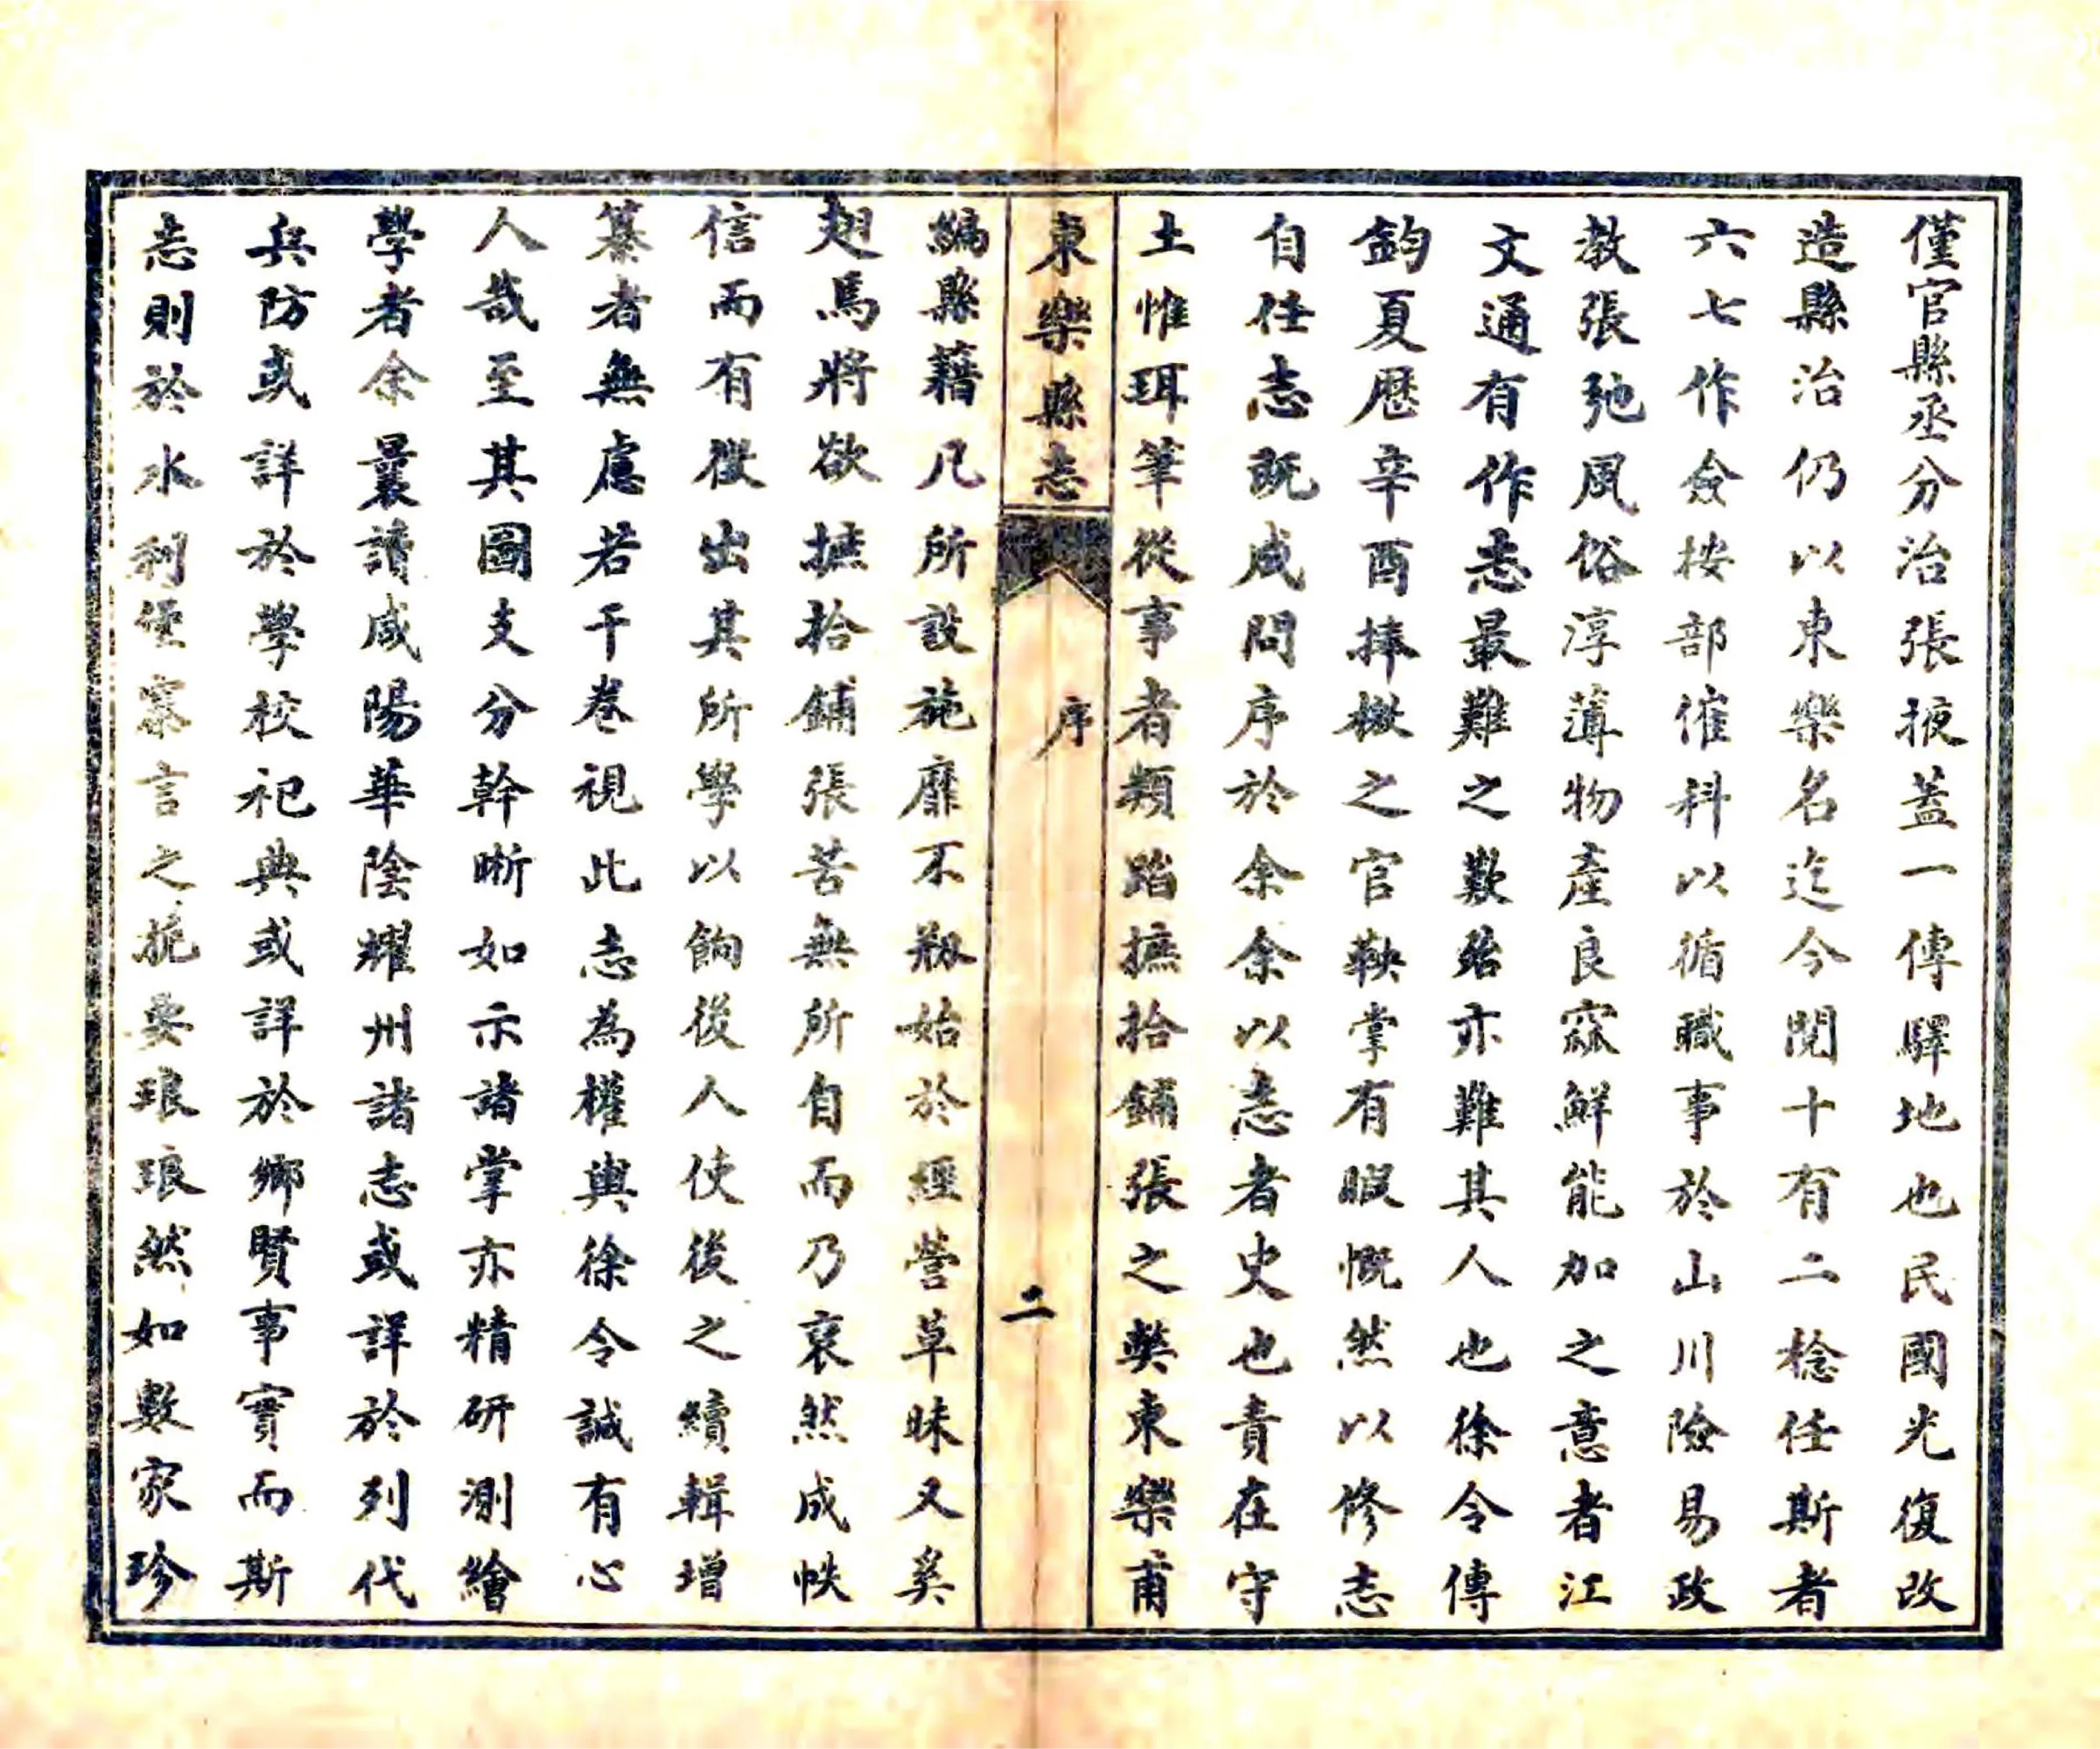 僅官縣丞分治張掖蓋一傳驛地也民國光復改
造縣治仍以東樂名迄今閱十有二稔任斯者
六七作僉按部催科以循職事於山川險易政
教張弛風俗淳薄物產良窳鮮能加之意者江
文通有作志最難之歎殆亦難其人也徐令傳
鈞夏歷辛酉捧檄之官鞅掌有暇慨然以修志
自任志既成問序於余余以志者史也責在守
土惟珥筆從事者類蹈摭拾鋪張之弊東樂甫
東樂縣志
序
二
編縣籍凡所設施靡不剏始於經營草昧又奚
翅馬將欲摭拾鋪張苦無所自而乃裒然成帙
信而有徵出其所學以餉後人使後之續輯增
纂者無慮若干卷視此志為權輿徐令誠有心
人哉至其圖支分幹晰如示諸掌亦精研測繪
學者余曩讀咸陽華陰耀州諸志或詳於列代
兵防或詳於學校祀典或詳於鄉賢事實而斯
志則於水利堡寨言之扼要琅琅然如數家珍